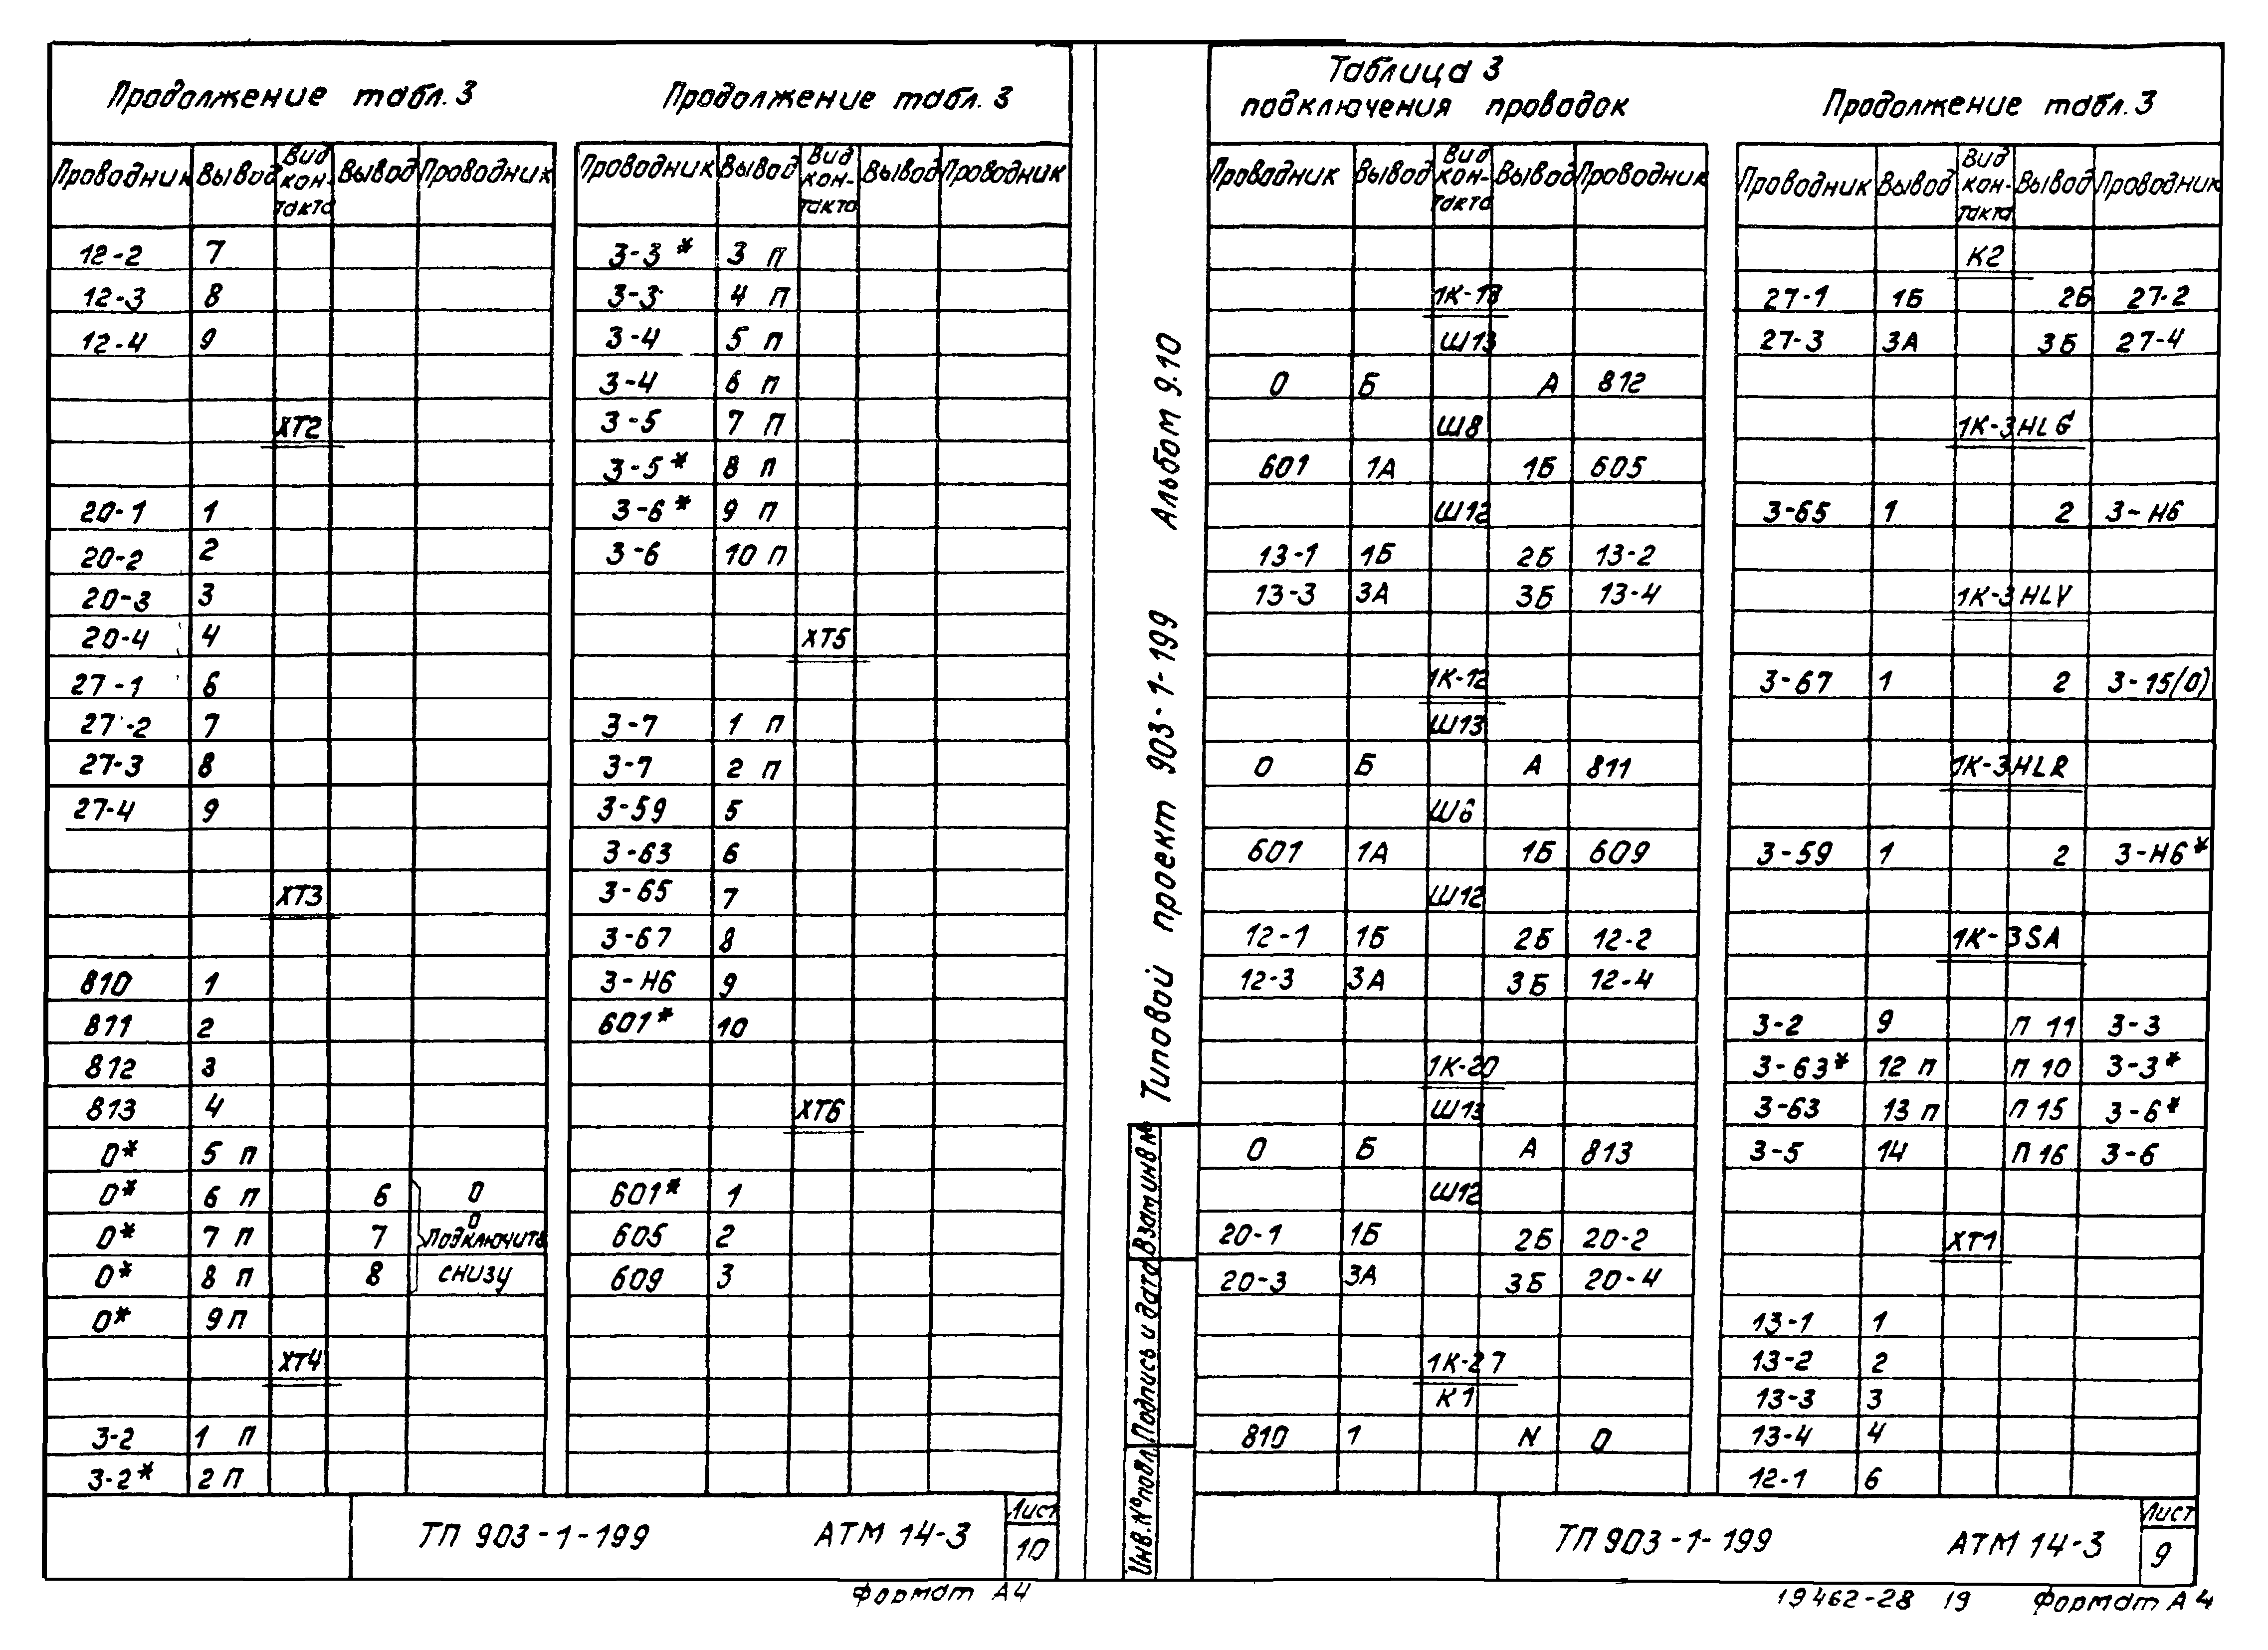 Продолжение табл. 3
Проводник Вывод Вид контакта Вывод Проводник
12-2 7
12-3 8
12-4 9
ХТ2
20-1 1
20-2 2
20-3 3
20-4 4
27-1 6
27-2 7
27-3 8
27-4 9
ХТ3
810 1
811 2
812 3
813 4
0* 5 П
0* 6 П 6 0
0* 7 П 7 0 Подключить
0* 8 П 8 снизу
0* 9 П
ХТ4
3-2 1 П
3-2* 2 П
Продолжение табл. 3
Проводник Вывод Вид контакта Вывод Проводник
3-3* 3 П
3-3 4 П
3-4 5 П
3-4 6 П
3-5 7 П
3-5* 8 П
3-6* 9 П
3-6 10 П
ХТ5
3-7 1 П
3-7 2 П
3-59 5
3-63 6
3-65 7
3-67 8
3-Н6 9
601* 10
ХТ6
601* 1
605 2
609 3
ТП 903-1-199 АТМ 14-3 Лист 10
Формат А4
Типовой проект 903-1-199 Альбом 9.10
Инв.№подл. Подпись и дата Взам инв №
Таблица 3
подключения проводок
Проводник Вывод Вид контакта Вывод Проводник
1К-13
Ш13
0 Б А 812
Ш8
601 1А 1Б 605
Ш12
13-1 1Б 2Б 13-2
13-3 3А 3Б 13-4
1К-12
Ш13
0 Б А 811
Ш6
601 1А 1Б 609
Ш12
12-1 1Б 2Б 12-2
12-3 3А 3Б 12-4
1К-20
Ш13
0 Б А 813
Ш12
20-1 1Б 2Б 20-2
20-3 3А 3Б 20-4
1К-27
К1
810 1 N 0
Продолжение табл. 3
Проводник Вывод Вид контакта Вывод Проводник
К2
27-1 1Б 2Б 27-2
27-3 3А 3Б 27-4
1К-3HLG
3-65 1 2 3-Н6
1К-3HLV
3-67 1 2 3-15(0)
1К-3HLR
3-59 1 2 3-Н6*
1К-3SA
3-2 9 П 11 3-3
3-63* 12 П П 10 3-3*
3-63 13 П П 15 3-6*
3-5 14 П 16 3-6
ХТ1
13-1 1
13-2 2
13-3 3
13-4 4
12-1 6
ТП 903-1-199 АТМ 14-3 Лист 9
19462-28 19 Формат А4